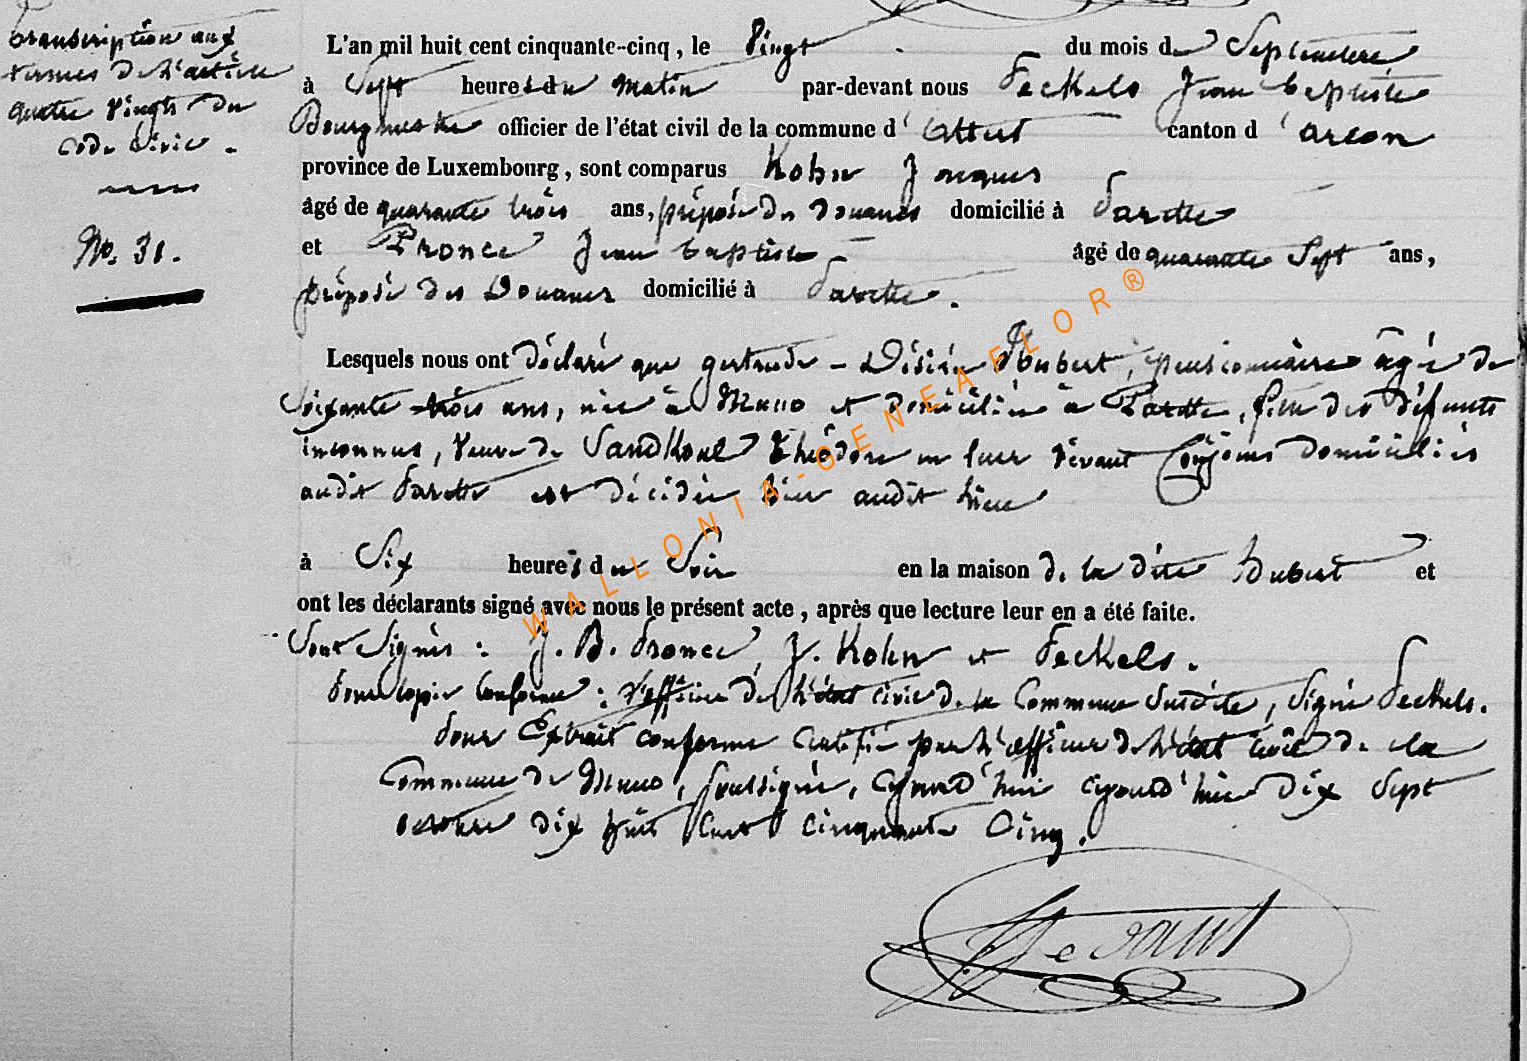 transcription aux
termes de l'article
quatre vingts du
code civil.
No. 31.
L'an mil huit cent cinquante-cinq, le Vingt du mois de Septembre
à Sept heures du matin par-devant nous Feckels Jean baptiste
Bourgmestre officier de l'état civil de la commune d'Attert canton d'arlon
province de Luxembourg, sont comparus Kohn Jacques
âgé de quarante trois ans, préposé des Douanes domicilié à Parette
et Pronce Jean baptiste âgé de quarante Sept ans,
préposé des Douanes domicilié à Parette.
Lesquels nous ont déclaré que gertrude - Désirée Hubert, pensionnaire âgée de
Soixante trois ans, née à Muno et domiciliée à Parette, fille des défunts
inconnus, veuve de Sandkoul Théodore en leur vivant Conjoins domiciliés
audit Parette est décédée hier audit lieu
à Six heures du Soir en la maison de la dite Hubert et
ont les déclarants signé avec nous le présent acte, après que lecture leur en a été faite.
Sont Signés : J. B. Pronce, J. Kohn et Feckels.
Pour copie conforme : l'officier de l'état civil de la Commune Susdite, Signé Feckels.
Pour Extrait conforme certifié par l'officier de l'état civil de la
Commune de Muno, Soussigné, cejourd'hui cejourd'hui Dix Sept
octobre dix huit Cent cinquante Cinq.
WALLONIA-GENEAFLOR®